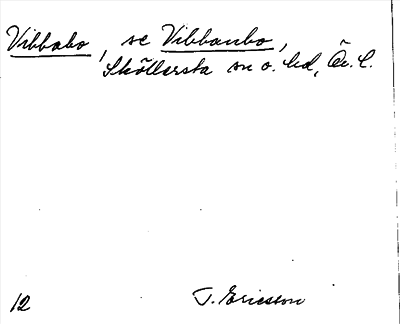 Vibbabo, se Vibbanbo,
Sköllersta sn o. hd, Ör. l.
12
T. Ericsson